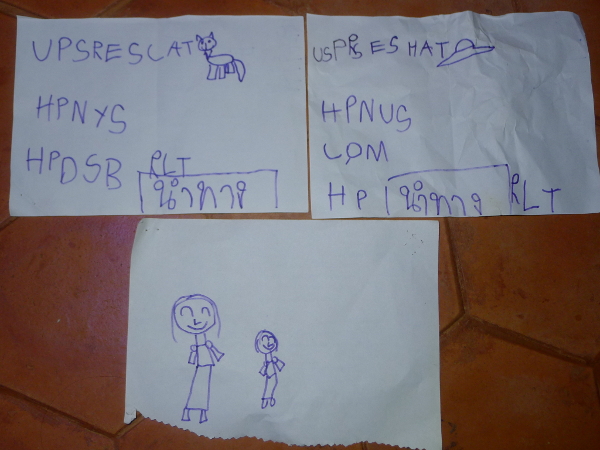 UPSRESCAT
HPNYS
HPDSB RLT
นำทาง
USPRSESHAT
HPNUS
LOM
HP นำทาง RLT